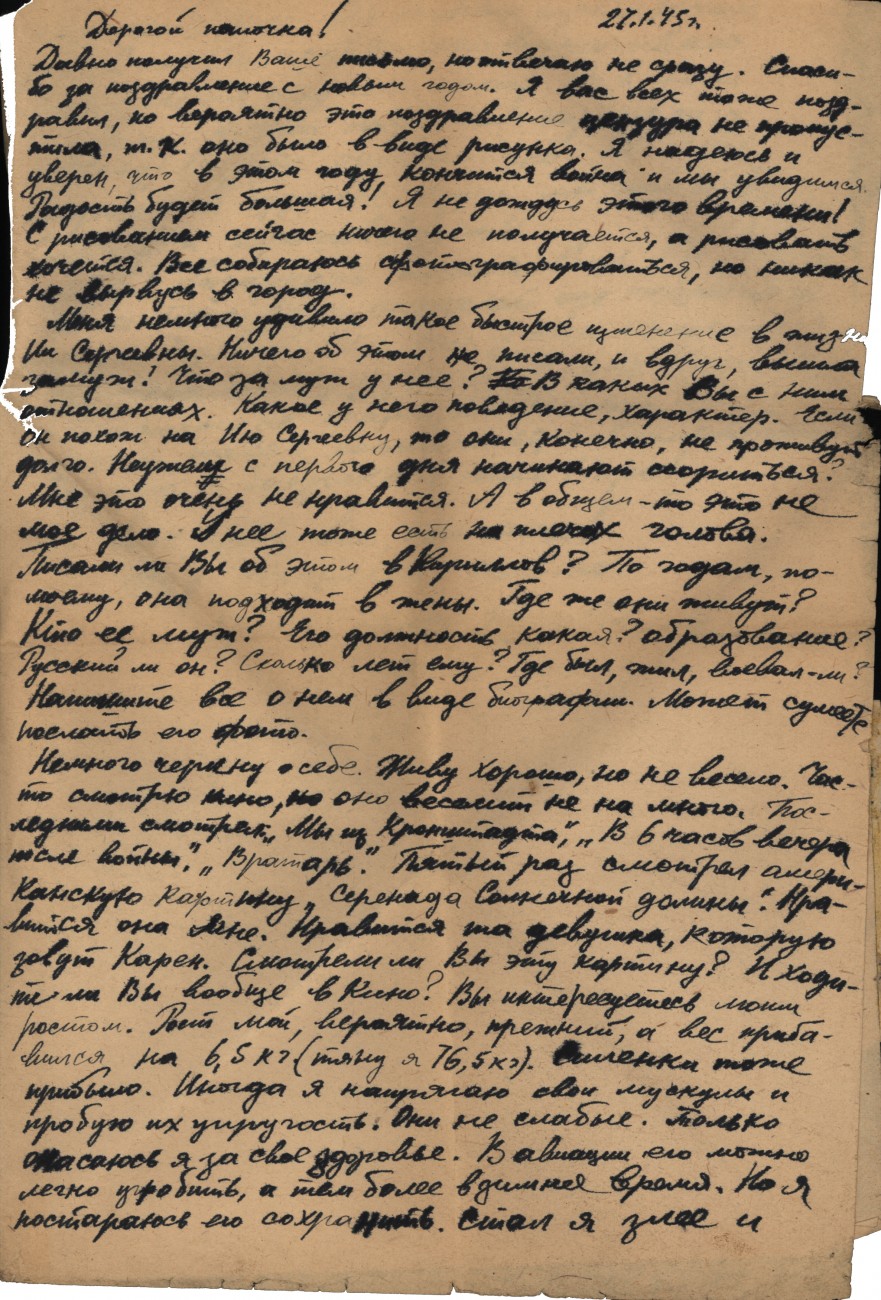 27.1.45г.
Дорогой папочка!
Давно получил Ваше письмо, но отвечаю не сразу. Спаси-
бо за поздравление с новым годом. Я вас всех тоже позд-
равил, но вероятно это поздравление цензура не пропус-
тила, т.к. оно было в виде рисунка. Я надеюсь и
уверен, что в этом году кончится война и мы увидимся.
Радость будет большая! Я не дождусь этого времени!
С рисованием сейчас ничего не получается, а рисовать
хочется. Все собираюсь сфотографироваться, но никак
не вырвусь в город.
Меня немного удивило такое быстрое изменение в жизни
Ии Сергеевны. Ничего об этом не писали, и вдруг, вышла
замуж! Что за муж у нее? В каких Вы с ним
отношениях. Какое у него поведение, характер. Если
он похож на Ию Сергеевну, то они, конечно, не проживут
долго. Неужели с первого дня начинают ссориться?
Мне это очень не нравится. А в общем-то это не
мое дело. У нее тоже есть на плечах голова.
Писали ли Вы об этом в Кириллов? По годам, по-
моему, она подходит в жены. Где же они живут?
Кто ее муж? Его должность какая? образование?
Русский ли он? Сколько лет ему? Где был, жил, воевал-ли?
Напишите все о нем в виде биографии. Может сумеете
послать его фото.
Немного черкну о себе. Живу хорошо, но не весело. Час-
то смотрю кино, но оно веселит не на много. Пос-
ледними смотрел „Мы из Кронштадта", „В 6 часов вечера
после войны", „Вратарь". Пятый раз смотрел амери-
канскую картину „Серенада Солнечной долины". Нра-
вится она мне. Нравится та девушка, которую
зовут Карен. Смотрели ли Вы эту картину? И ходи-
те ли Вы вообще в кино? Вы интересуетесь моим
ростом. Рост мой, вероятно, прежний, а вес приба-
вился на 6,5 кг (тяну я 76,5 кг). Силенки тоже
прибыло. Иногда я напрягаю свои мускулы и
пробую их упругость. Они не слабые. Только
опасаюсь я за свое здоровье. В авиации его можно
легко угробить, а тем более в зимнее время. Но я
постараюсь его сохранить. Стал я злее и